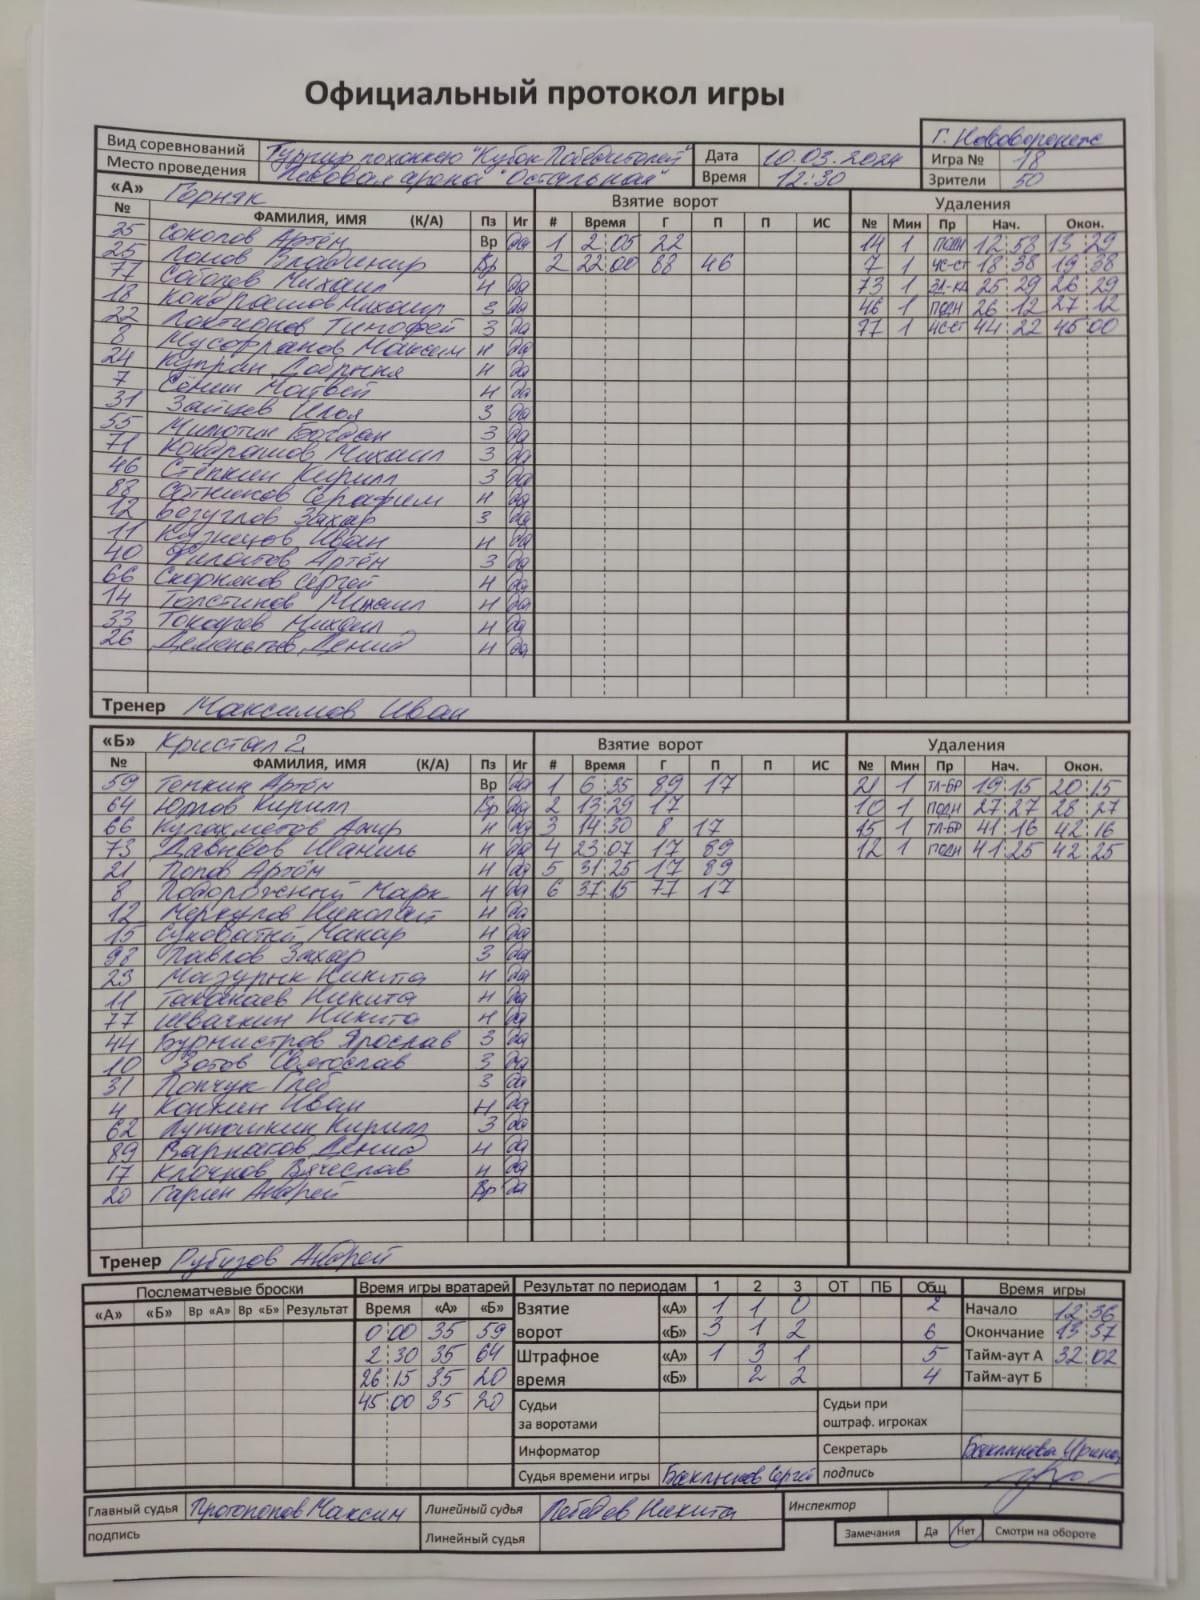 Официальный протокол игры
г. Нововоронеж
Вид соревнований Турнир по хоккею "Кубок Победителей" Дата 10.03.2024 Игра № 18
Место проведения Ледовая арена "Остальная" Время 12:30 Зрители 50
«А» Горняк Взятие ворот Удаления
№ ФАМИЛИЯ, ИМЯ (К/А) Пз Иг # Время Г П П ИС № Мин Пр Нач. Окон.
35 Соколов Артём Вр да 1 2:05 22 14 1 подн 12:58 13:29
25 Попов Владимир Вр 2 22:00 88 46 7 1 чс-ст 18:38 19:38
77 Соболев Михаил н да 73 1 зд-кл 25:29 26:29
18 Кондрашов Михаил з да 46 1 подн 26:12 27:12
22 Локтионов Тимофей з да 77 1 нс-ст 44:22 45:00
8 Мусафранов Максим н да
24 Купран Добрыня н да
7 Сёмин Матвей н да
31 Зайцев Илья з да
55 Милютин Богдан з да
71 Кондрашов Михаил з да
46 Стёпкин Кирилл з да
88 Сотников Серафим н да
12 Безуглов Захар з да
11 Кузнецов Иван н да
40 Филатов Артём з да
66 Скорняков Сергей н да
14 Толстиков Михаил н да
33 Токарев Михаил н да
26 Дементьев Денис н да
Тренер Максимов Иван
«Б» Кристал 2 Взятие ворот Удаления
№ ФАМИЛИЯ, ИМЯ (К/А) Пз Иг # Время Г П П ИС № Мин Пр Нач. Окон.
59 Тепкин Артём Вр да 1 6:35 89 17 21 1 тл-бр 19:15 20:15
64 Юрлов Кирилл Вр да 2 13:29 17 10 1 подн 27:27 28:27
66 Кулахметов Амир н да 3 14:30 8 17 15 1 тл-бр 41:16 42:16
73 Давыдов Шамиль н да 4 23:07 17 89 12 1 подн 41:25 42:25
21 Попов Артём н да 5 31:25 17 89
8 Подорожный Марк н да 6 37:15 77 17
12 Меркулов Николай н да
15 Суковатый Макар н да
98 Павлов Захар з да
23 Мазурык Никита н да
11 Таканаев Никита н да
77 Швачкин Никита н да
44 Бурмистров Ярослав з да
10 Зотов Святослав з да
31 Попчук Глеб з да
4 Конкин Иван н да
62 Лунюшкин Кирилл з да
89 Варнаков Денис н да
17 Клочков Вячеслав н да
20 Гарин Андрей Вр да
Тренер Рубизов Андрей
Послематчевые броски Время игры вратарей Результат по периодам 1 2 3 ОТ ПБ Общ Время игры
«А» «Б» Вр «А» Вр «Б» Результат Время «А» «Б» Взятие «А» 1 1 0 2 Начало 12:36
0:00 35 59 ворот «Б» 3 1 2 6 Окончание 13:37
2:30 35 64 Штрафное «А» 1 3 1 5 Тайм-аут А 32:02
26:15 35 20 время «Б» 2 2 4 Тайм-аут Б
45:00 35 20 Судьи за воротами Судьи при оштраф. игроках
Информатор Секретарь Баклыкова Ирина
Судья времени игры Баклыков Сергей подпись
Главный судья Протопопов Максим Линейный судья Лебедев Никита Инспектор
подпись Линейный судья Замечания Да Нет Смотри на обороте